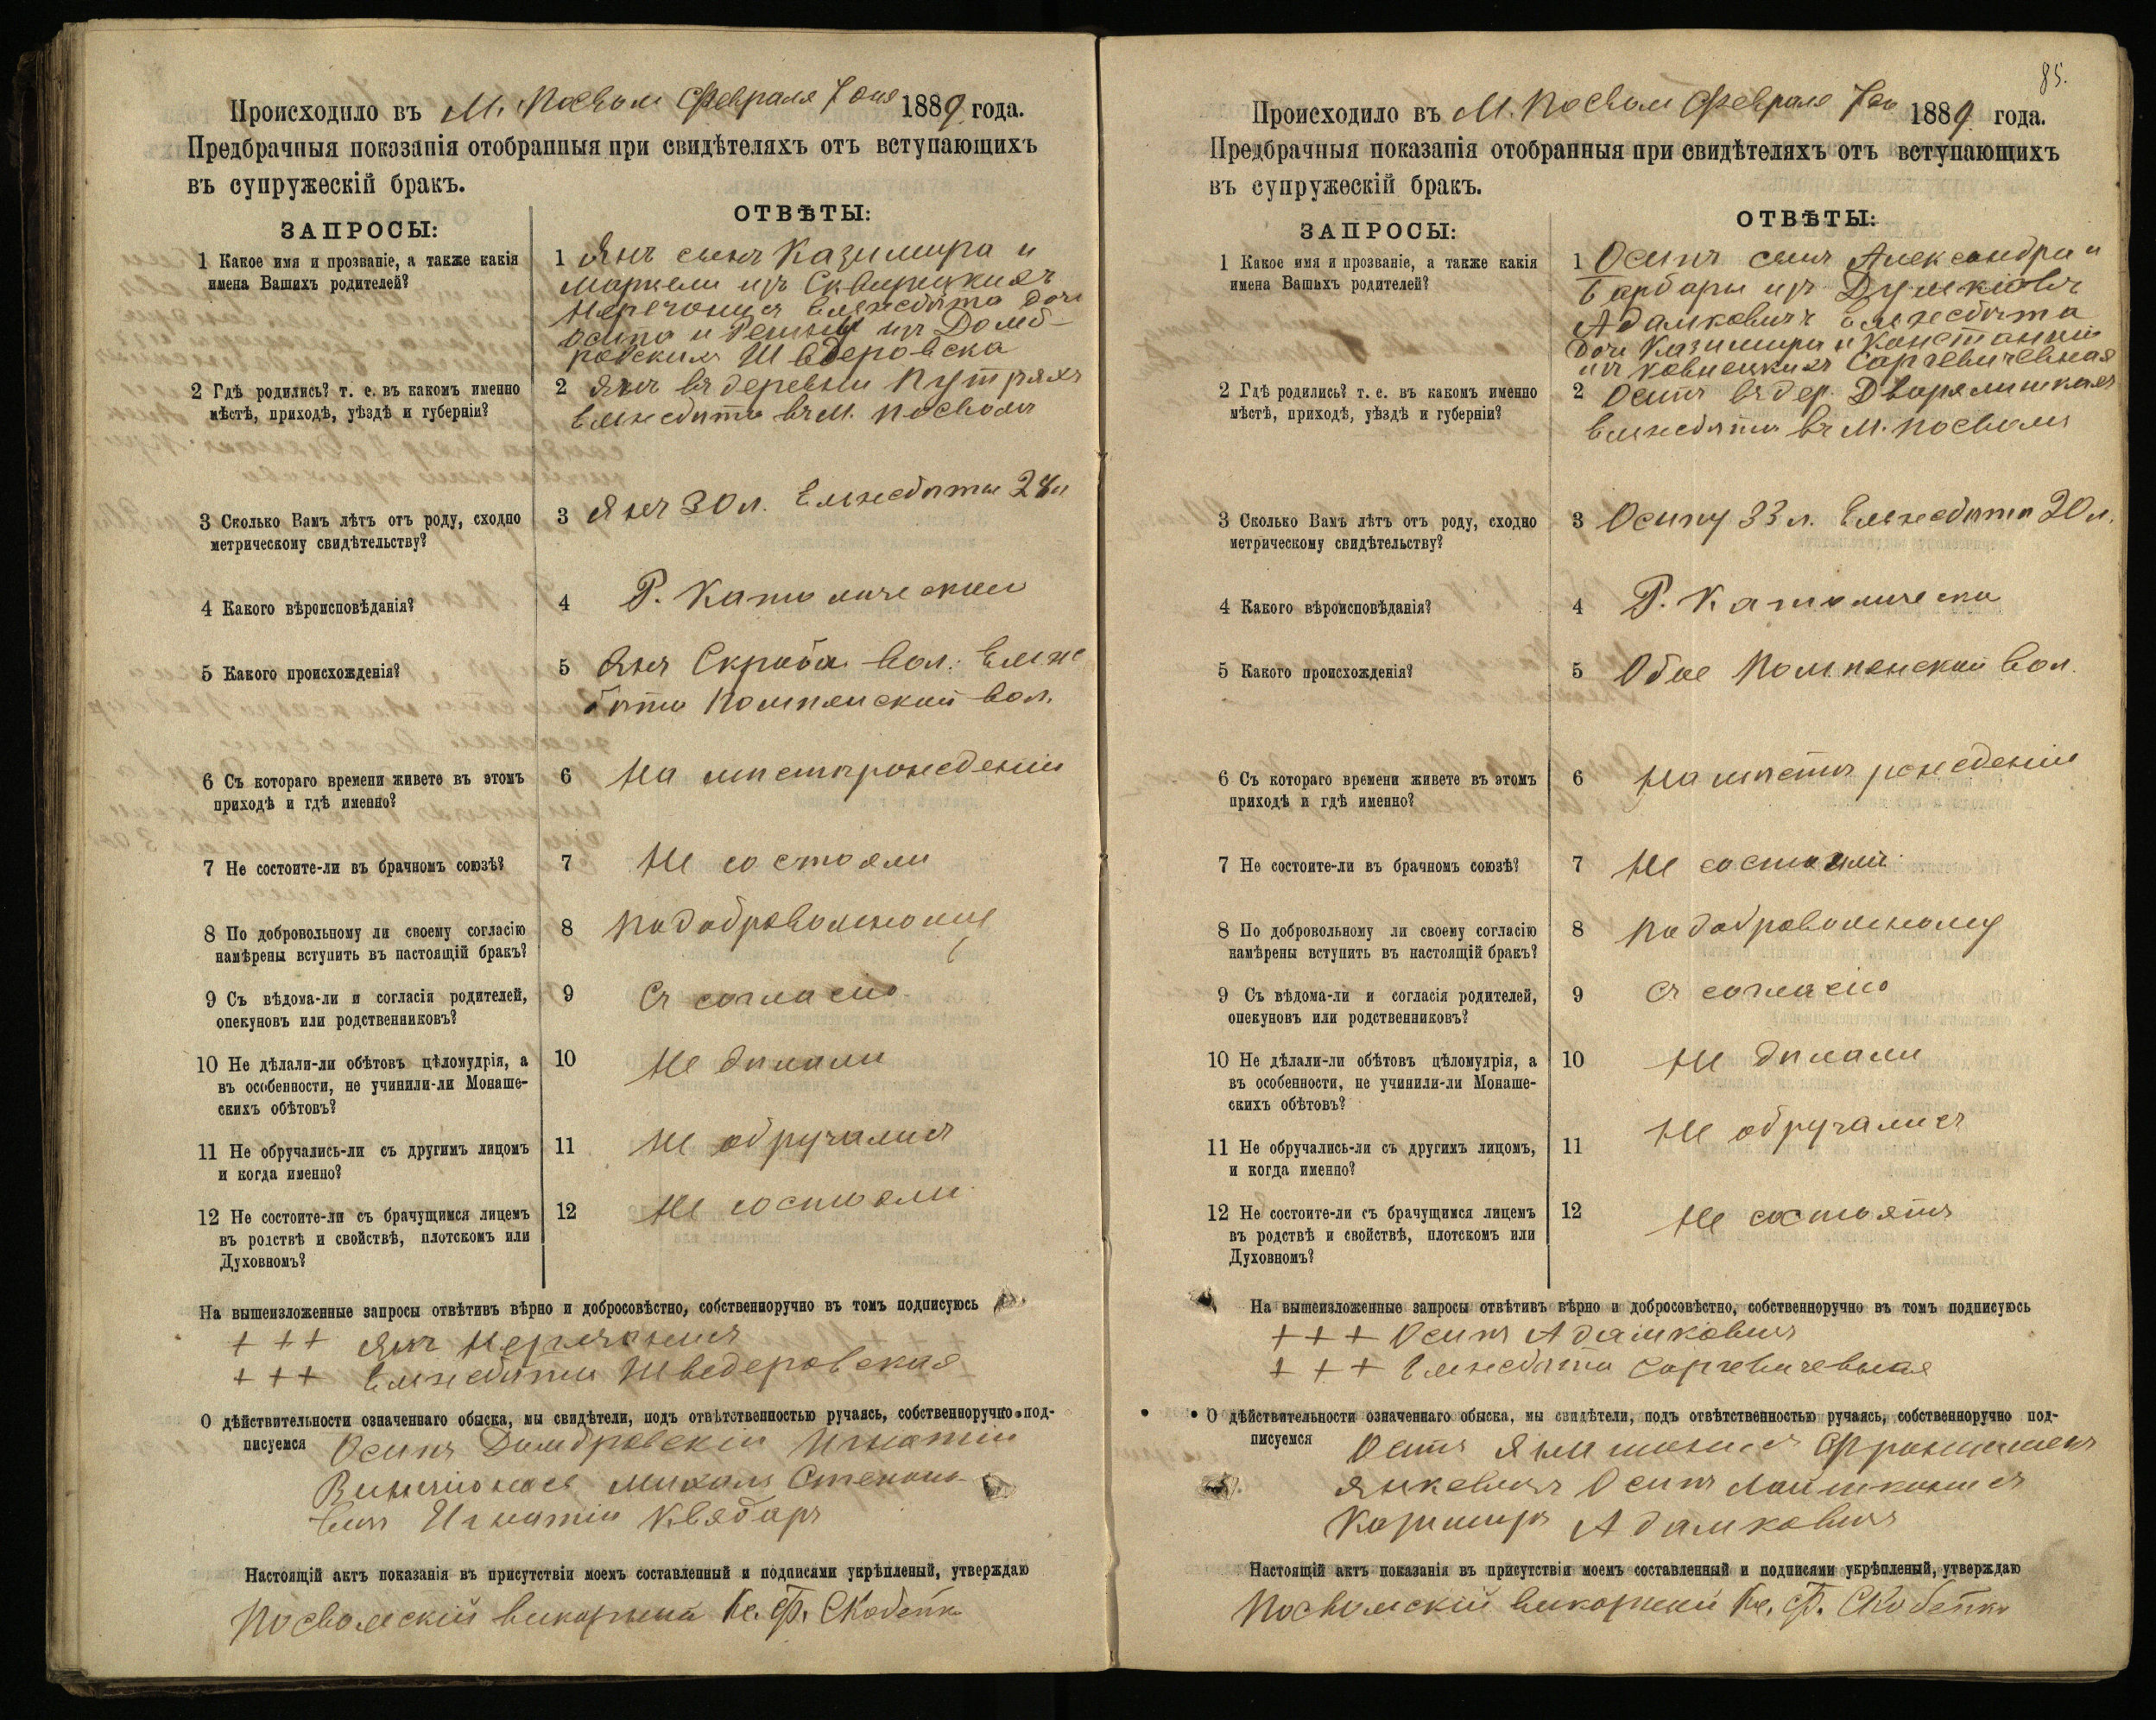 Происходило въ М. Посволь Февраля 7 дня 1889 года.
Предбрачныя показанія отобранныя при свидѣтеляхъ отъ вступающихъ
въ супружескій бракъ.
ЗАПРОСЫ:
ОТВѢТЫ:
1 Какое имя и прозваніе, а также какія
имена Вашихъ родителей?
1 Янъ сынъ Казимира и
Марцели изъ
Елжебѣта доч
Осипа и изъ Домб-
ровскихъ Шведеровска
2 Гдѣ родились? т. е. въ какомъ именно
мѣстѣ, приходѣ, уѣздѣ и губерніи?
2 Янъ въ деревни Путряхъ
Елжебѣта въ М. Посволь
3 Сколько Вамъ лѣтъ отъ роду, сходно
метрическому свидѣтельству?
3 Янъ 30 л. Елжебѣта
4 Какого вѣроисповѣданія?
4 Р. Католическаи
5 Какого происхожденія?
5 Янъ Скраба вол. Елже
бѣта Помпянскай вол.
6 Съ котораго времени живете въ этомъ
приходѣ и гдѣ именно?
6 На мѣстѣ рожеденіи
7 Не состоите-ли въ брачномъ союзѣ?
7 Не состояли
8 По добровольному ли своему согласію
намѣрены вступить въ настоящій бракъ?
8 По добровольному
9 Съ вѣдома-ли и согласія родителей,
опекуновъ или родственниковъ?
9 Съ согласіо
10 Не дѣлали-ли обѣтовъ цѣломудрія, а
въ особенности, не учинили-ли Монаше-
скихъ обѣтовъ?
10 Не дѣлали
11 Не обручались-ли съ другимъ лицомъ
и когда именно?
11 Не обручалися
12 Не состоите-ли съ брачущимся лицемъ
въ родствѣ и свойствѣ, плотскомъ или
Духовномъ?
12 Не состояли
На вышеизложенные запросы отвѣтивъ вѣрно и добросовѣстно, собственноручно въ томъ подписуюсь
+ + + Янъ
+ + + Елжебѣта Шведеровская
О дѣйствительности означеннаго обыска, мы свидѣтели, подъ отвѣтственностью ручаясь, собственноручно под-
писуемся Осипъ Домбровскіи Игнатіи
Михалъ
Игнатіи Квядаръ
Настоящій актъ показанія въ присутствіи моемъ составленный и подписями укрѣпленый, утверждаю
Посвольскій викарный Кс. Ф. Скобейко
85.
Происходило въ М. Посволь Февраля 7 дн 1889 года.
Предбрачныя показанія отобранныя при свидѣтеляхъ отъ вступающихъ
въ супружескій бракъ.
ЗАПРОСЫ:
ОТВѢТЫ:
1 Какое имя и прозваніе, а также какія
имена Вашихъ родителей?
1 Осипъ сынъ Александра и
Барбары изъ
Адамковичъ Елжебѣта
доч Казимира и Констанціи
изъ Ковнецкихъ Соргевичевная
2 Гдѣ родились? т. е. въ какомъ именно
мѣстѣ, приходѣ, уѣздѣ и губерніи?
2 Осипъ въ дер. Дворялишкахъ
Елжебѣта въ М. Посволь
3 Сколько Вамъ лѣтъ отъ роду, сходно
метрическому свидѣтельству?
3 Осипу 33 л. Елжебѣта 20 л.
4 Какого вѣроисповѣданія?
4 Р. Католическа
5 Какого происхожденія?
5 Обое Помпянскай вол.
6 Съ котораго времени живете въ этомъ
приходѣ и гдѣ именно?
6 На мѣстѣ рожеденіи
7 Не состоите-ли въ брачномъ союзѣ?
7 Не состояли
8 По добровольному ли своему согласію
намѣрены вступить въ настоящій бракъ?
8 По добровольному
9 Съ вѣдома-ли и согласія родителей,
опекуновъ или родственниковъ?
9 Съ согласіо
10 Не дѣлали-ли обѣтовъ цѣломудрія, а
въ особенности, не учинили-ли Монаше-
скихъ обѣтовъ?
10 Не дѣлали
11 Не обручались-ли съ другимъ лицомъ,
и когда именно?
11 Не обручалися
12 Не состоите-ли съ брачущимся лицемъ
въ родствѣ и свойствѣ, плотскомъ или
Духовномъ?
12 Не состоятъ
На вышеизложенные запросы отвѣтивъ вѣрно и добросовѣстно, собственноручно въ томъ подписуюсь
+ + + Осипъ Адамковичъ
+ + + Елжебѣта Соргевичевная
О дѣйствительности означеннаго обыска, мы свидѣтели, подъ отвѣтственностью ручаясь, собственноручно под-
писуемся Осипъ Францишекъ
Янкевичъ Осипъ
Казимиръ Адамковичъ
Настоящій актъ показанія въ присутствія моемъ составленный и подписями укрѣпленый, утверждаю
Посвольскій викарный Кс. Ф. Скобейко